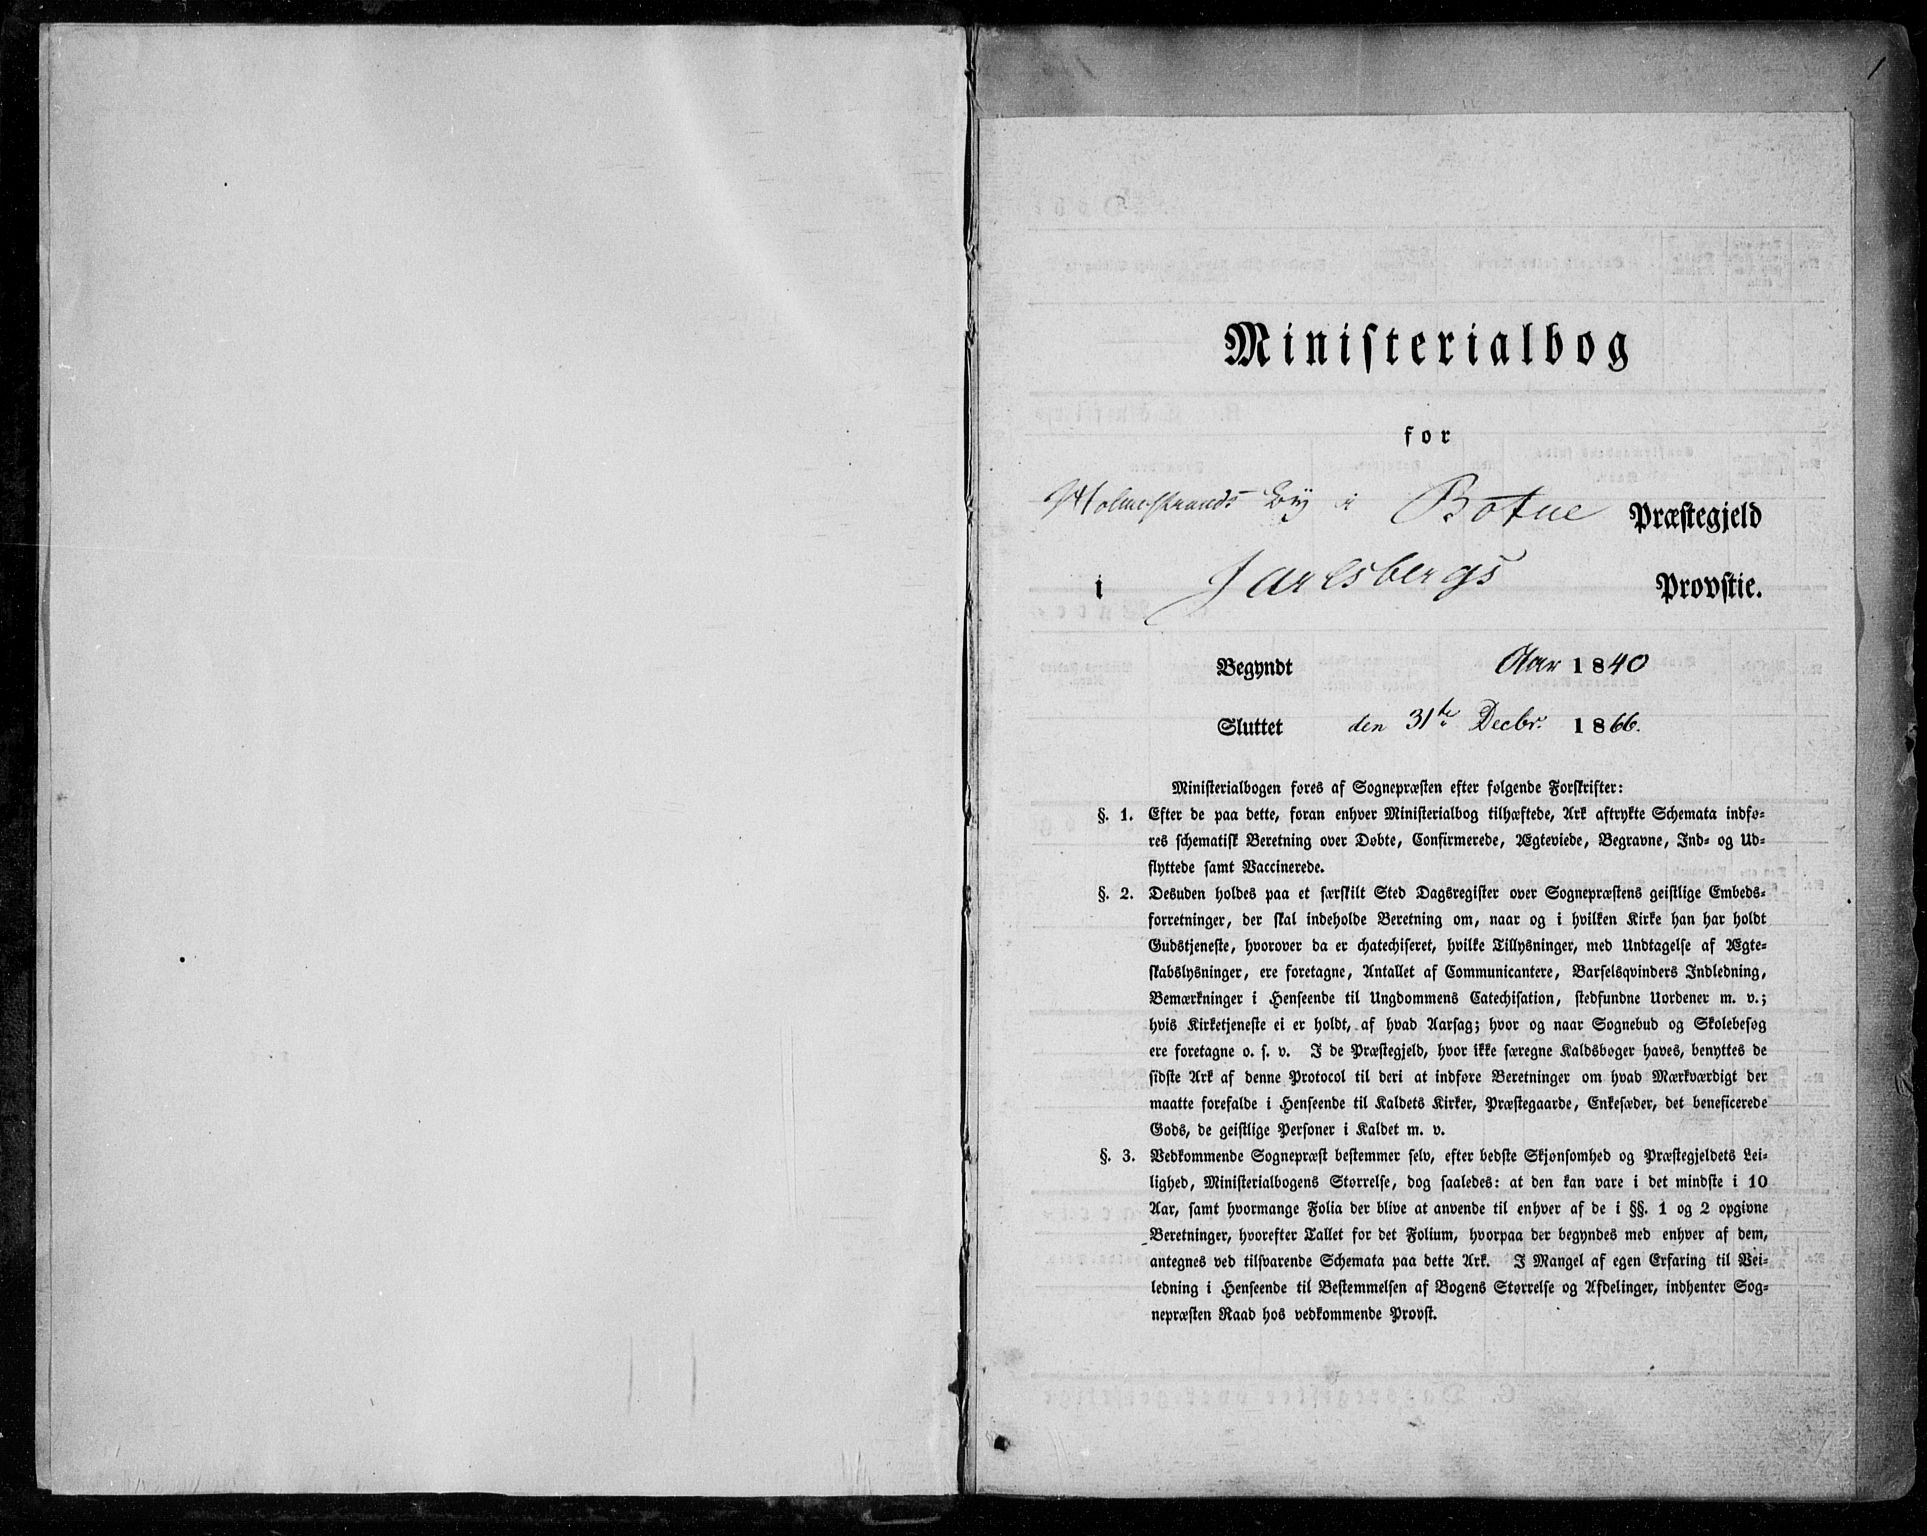 1
Ministerialbog
for
Holmestrands By i Botne Præstegjeld
i Jarlsbergs Provstie.
Begyndt Aar 1840
Sluttet den 31te Decbr. 1866.
Ministerialbogen føres af Sognepræsten efter følgende Forskrifter:
§. 1. Efter de paa dette, foran enhver Ministerialbog tilhæftede, Ark aftrykte Schemata indfø-
res schematisk Beretning over Døbte, Confirmerede, Ægteviede, Begravne, Ind- og Ud-
flyttede samt Vaccinerede.
§. 2. Desuden holdes paa et særskilt Sted Dagsregister over Sognepræstens geistlige Embeds-
forretninger, der skal indeholde Beretning om, naar og i hvilken Kirke han har holdt
Gudstjeneste, hvorover da er chatechiseret, hvilke Tillysninger, med Undtagelse af Ægte-
skabslysninger, ere foretagne, Antallet af Communicantere, Barselsqvinders Indledning,
Bemærkninger i Henseende til Ungdommens Catechisation, stedfundne Uordener m. v.;
hvis Kirketjeneste ei er holdt, af hvad Aarsag; hvor og naar Sognebud og Skolebesøg
ere foretagne o. s. v. I de Præstegjeld, hvor ikke særegne Kaldsbøger haves, benyttes de
sidste Ark af denne Protocol til deri at indføre Beretninger om hvad Mærkværdigt der
maatte forefalde i Henseende til Kaldets Kirker, Præstegaarde, Enkesæder, det beneficerede
Gods, de geistlige Personer i Kaldet m. v.
§. 3. Vedkommende Sognepræst bestemmer selv, efter bedste Skjønsomhed og Præstegjeldets Lei-
lighed, Ministerialbogens Størrelse, dog saaledes: at den kan vare i det mindste i 10
Aar, samt hvormange Folia der blive at anvende til enhver af de i §§. 1 og 2 opgivne
Beretninger, hvorefter Tallet for det Folium, hvorpaa der begyndes med enhver af dem,
antegnes ved tilsvarende Schemata paa dette Ark. I Mangel af egen Erfaring til Vei-
ledning i Henseende til Bestemmelsen af Bogens Størrelse og Afdelinger, indhenter Sog-
nepræsten Raad hos vedkommende Provst.